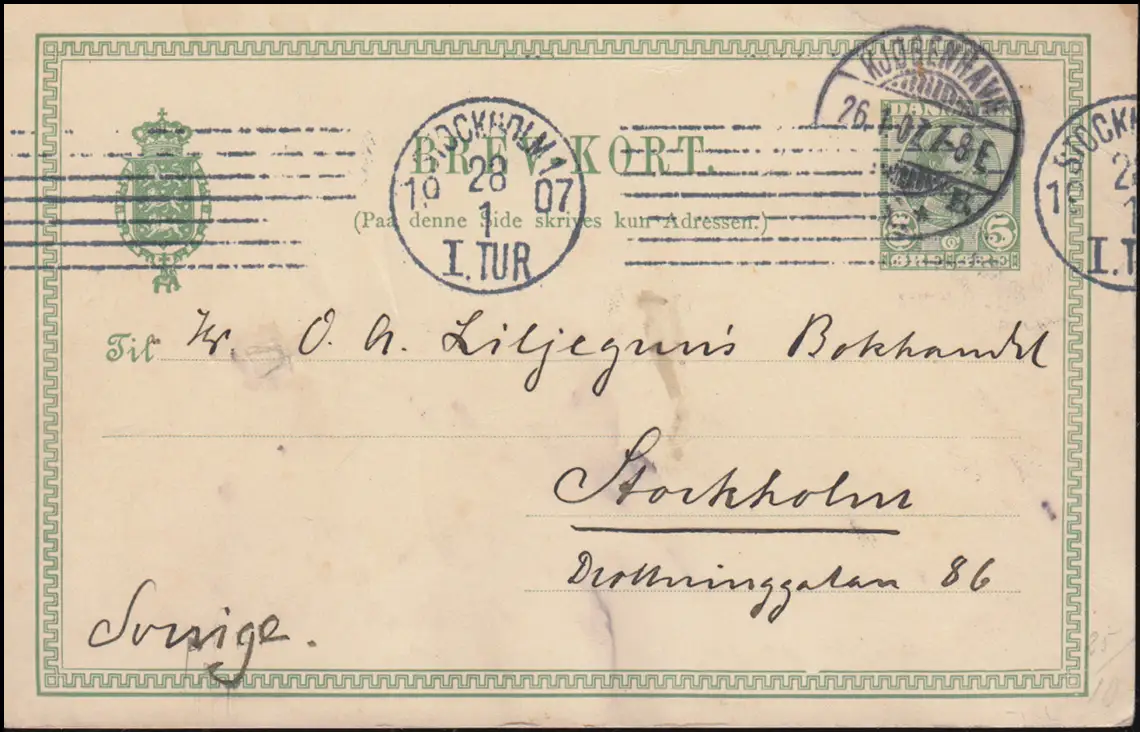 KJØBENHAVN
26.1.07.7-8E.
B.
DANMARK
5 5
ØRE ØRE
STOCKHOLM 1
19 28 07
1
I. TUR
STOCKH
1 2
1
I. T
BREVKORT.
(Paa denne Side skrives kun Adressen.)
Til Hr. O. A. Liljegrens Bokhandel
Stockholm
Drottninggatan 86
Sverige.
35/
10